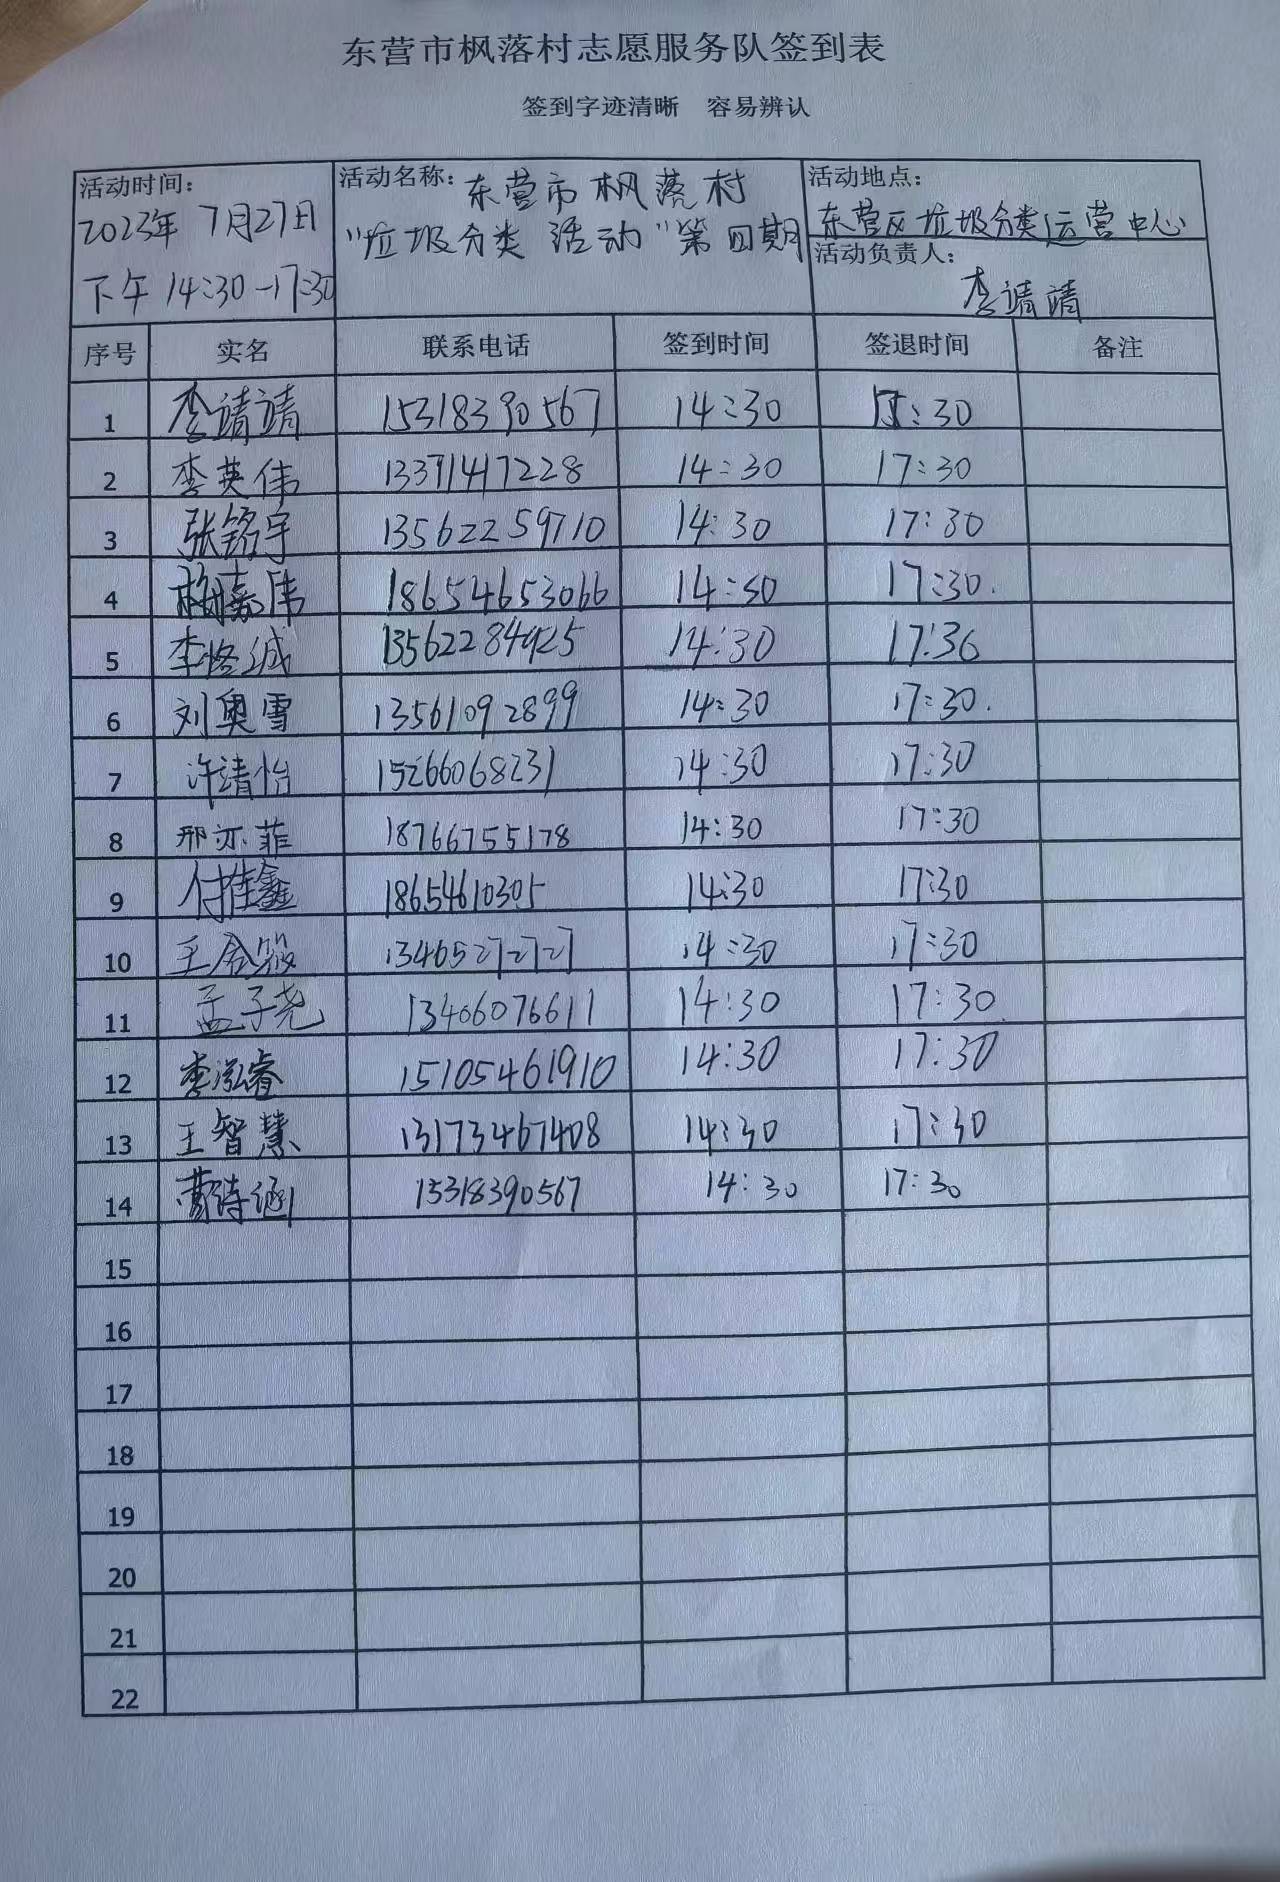 东营市枫落村志愿服务队签到表
签到字迹清晰 容易辨认
活动时间：
2023年 7月27日
下午 14:30-17:30
活动名称：东营市枫落村
“垃圾分类 活动”第四期
活动地点：
东营区垃圾分类运营中心
活动负责人：
李靖靖
序号 实名 联系电话 签到时间 签退时间 备注
1 李靖靖 15318390567 14:30 :30
2 李英伟 13371417228 14:30 17:30
3 张铭宇 13562259710 14:30 17:30
4 梅嘉伟 18654653066 14:30 17:30.
5 李恪诚 13562284925 14:30 17:36
6 刘奥雪 13561092899 14:30 17:30.
7 许靖怡 15266068231 14:30 17:30
8 邢亦菲 18766755178 14:30 17:30
9 付佳鑫 18654610305 14:30 17:30
10 王 13465272727 14:30 17:30
11 孟子尧 13406076611 14:30 17:30
12 李泓睿 15105461910 14:30 17:30
13 王智慧 13173467408 14:30 17:30
14 曹诗涵 15318390567 14:30 17:30
15
16
17
18
19
20
21
22